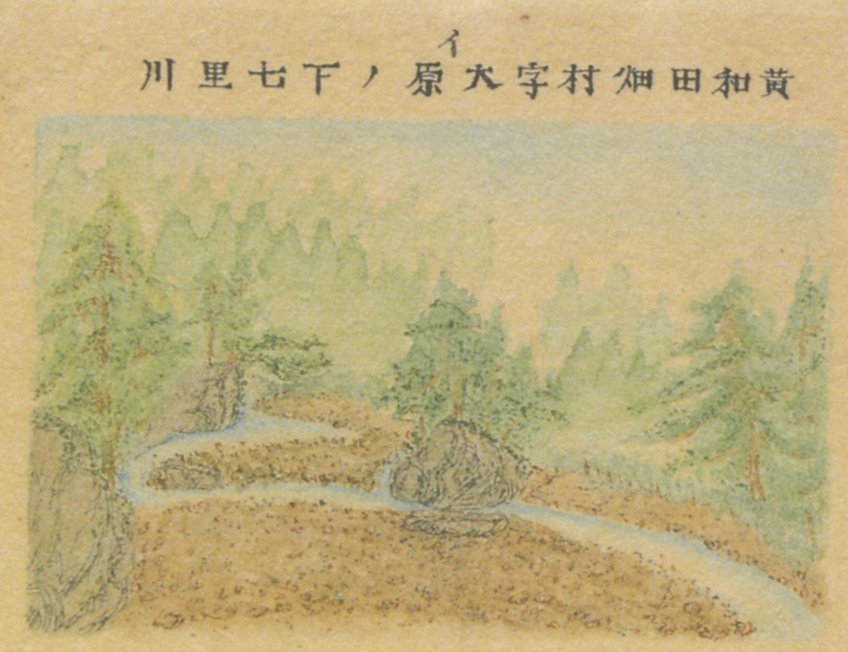 イ
黄和田畑村字大原ノ下七里川